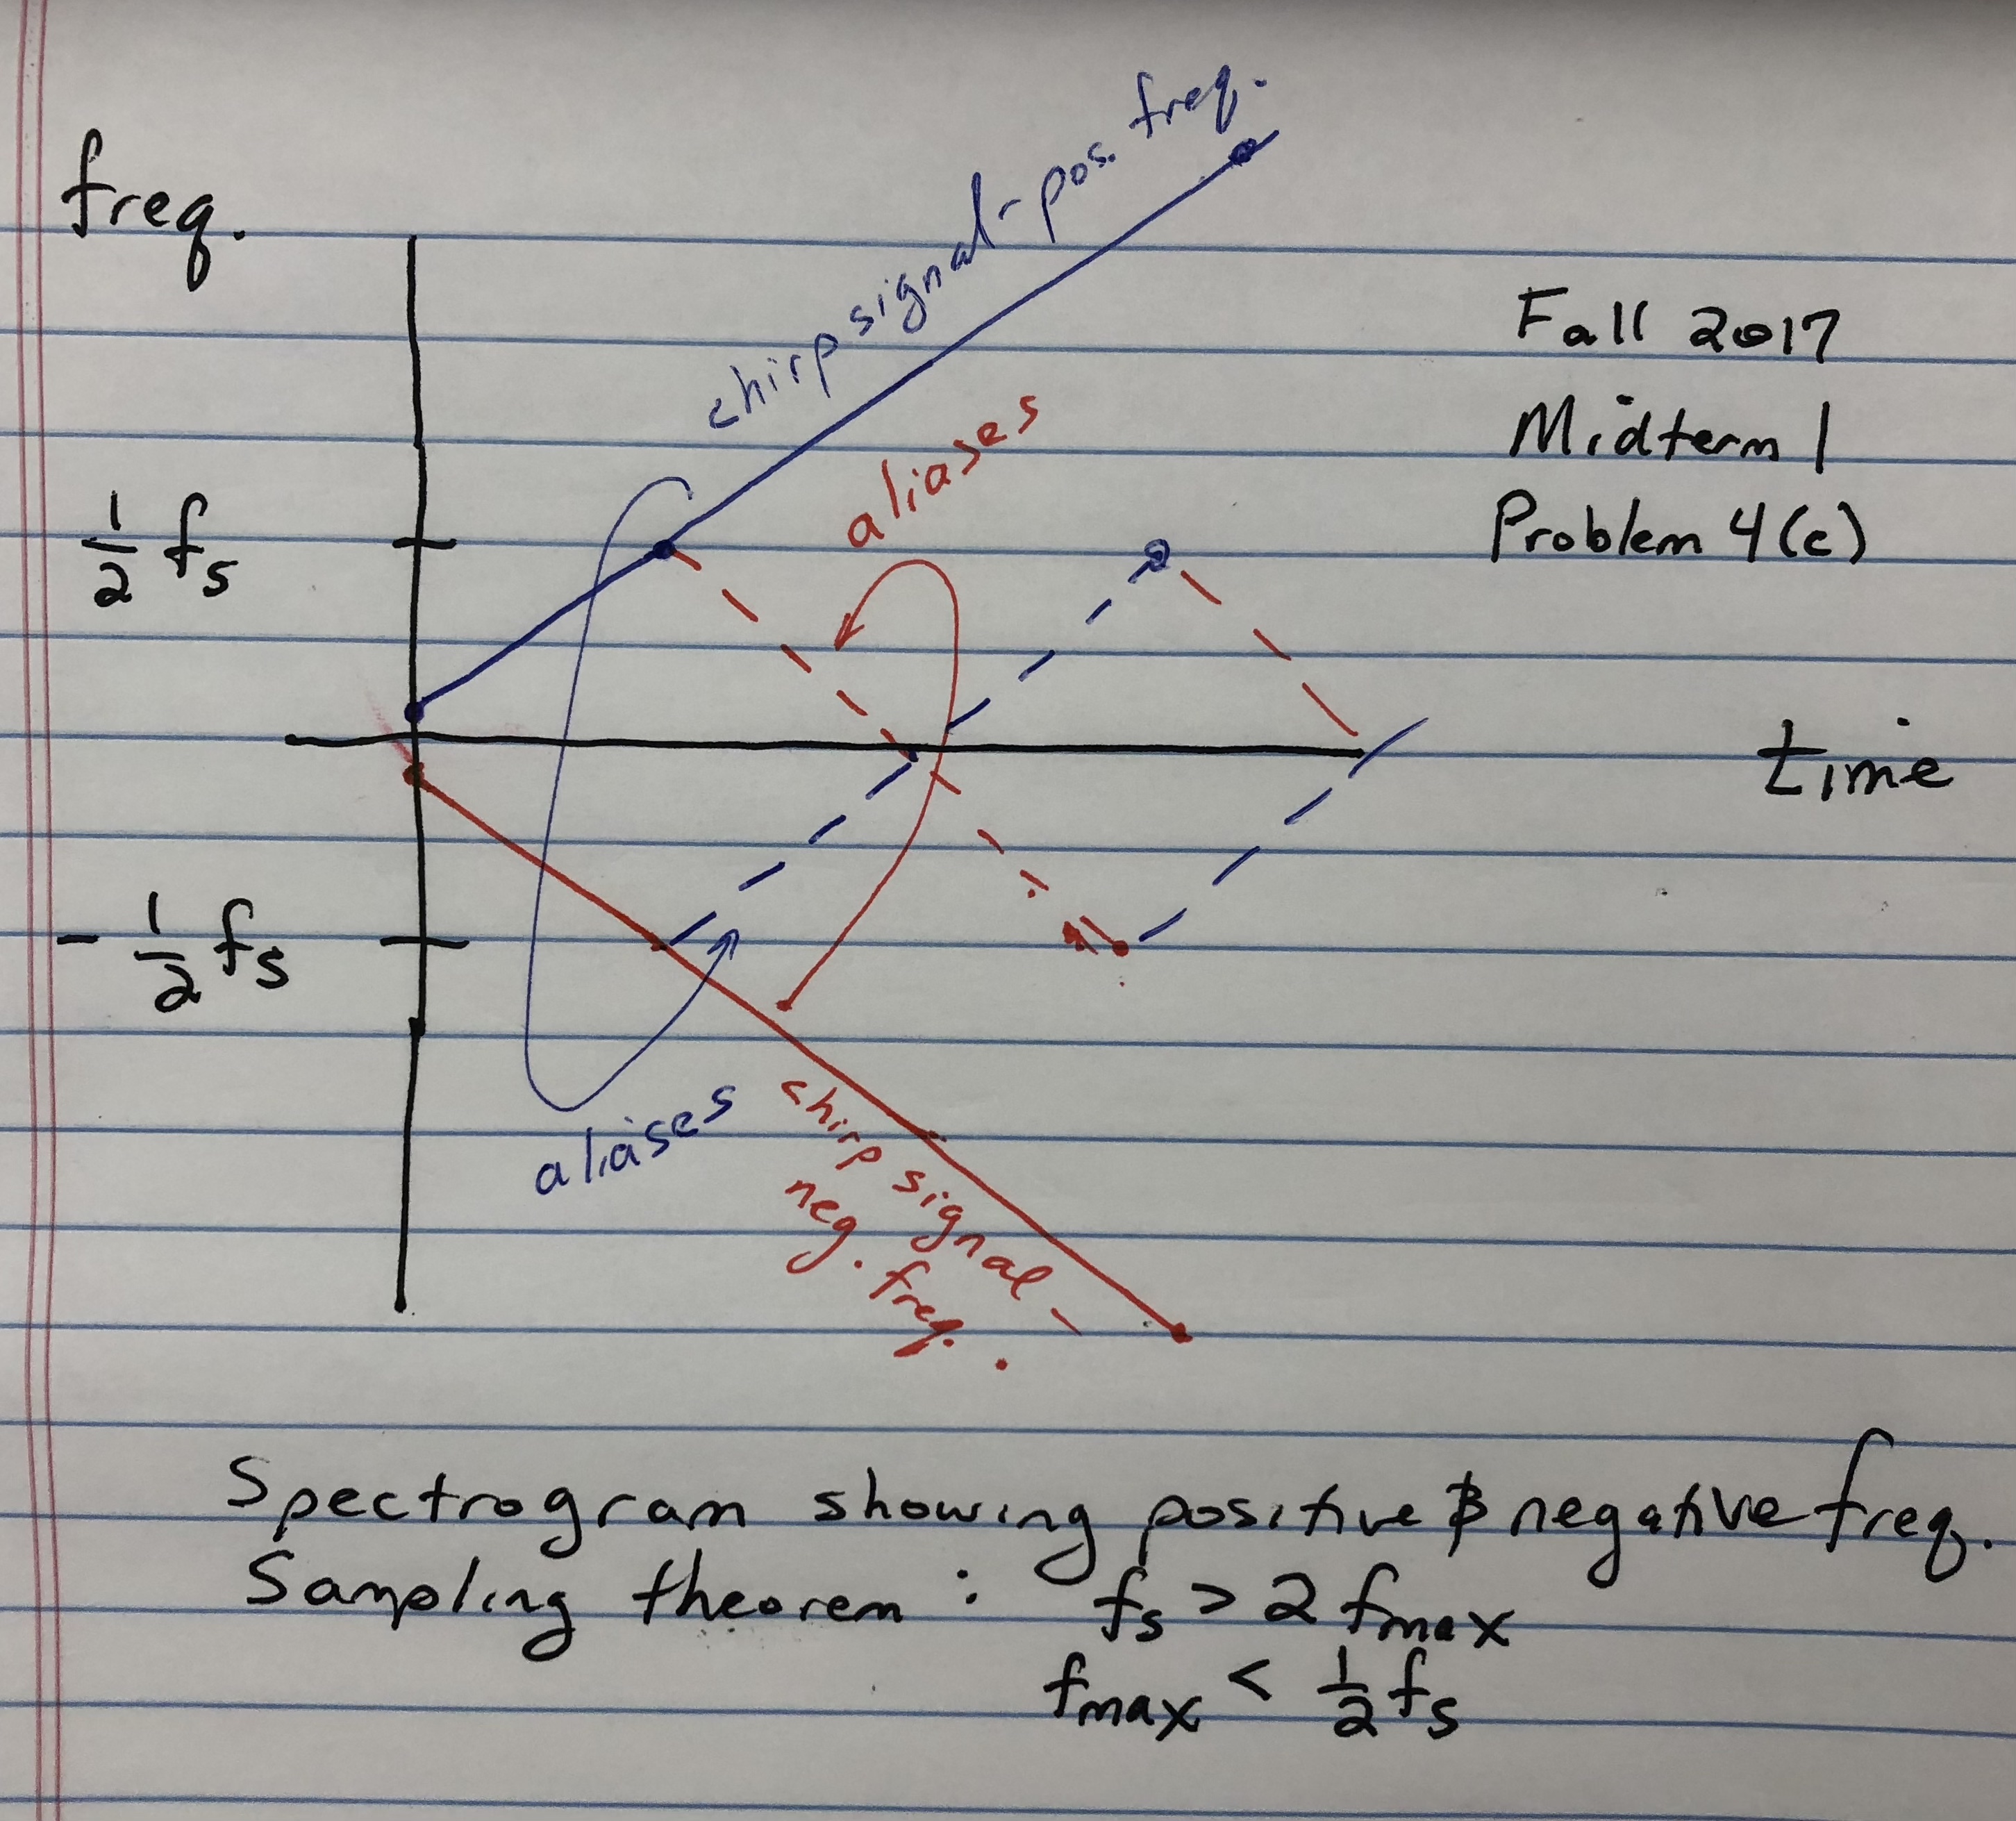 freq.
chirp signal - pos. freq.
Fall 2017
Midterm 1
Problem 4(c)
aliases
1/2 fs
time
- 1/2 fs
aliases
chirp signal -
neg. freq.
Spectrogram showing positive & negative freq.
Sampling theorem : fs > 2 fmax
fmax < 1/2 fs